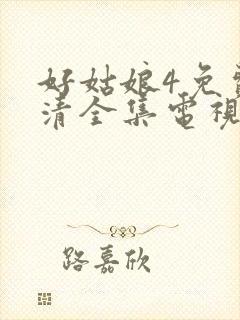 好姑娘4免
清全集電視
路嘉欣